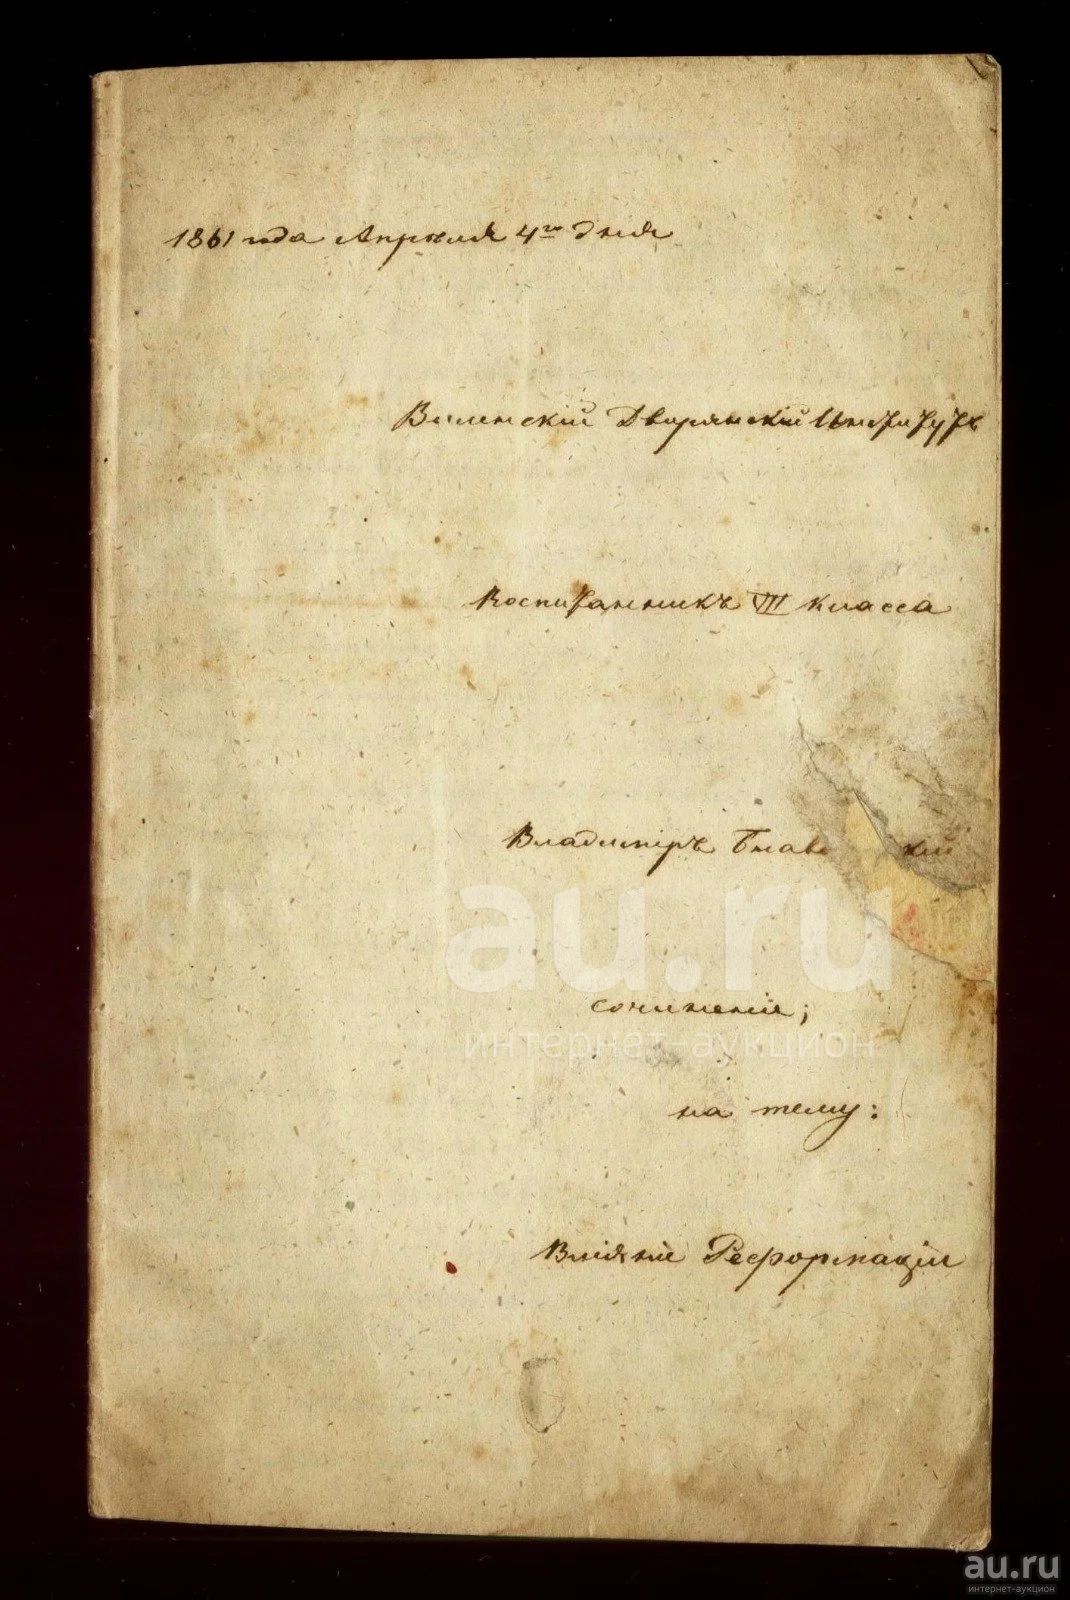 1861 года Апрѣля 4го дня
Виленскій Дворянскій Институтъ
Воспитанникъ VII класса
Владиміръ
сочиненіе;
на тему:
Вліяніе Реформаціи
au.ru
интернет-аукцион
au.ru
интернет-аукцион